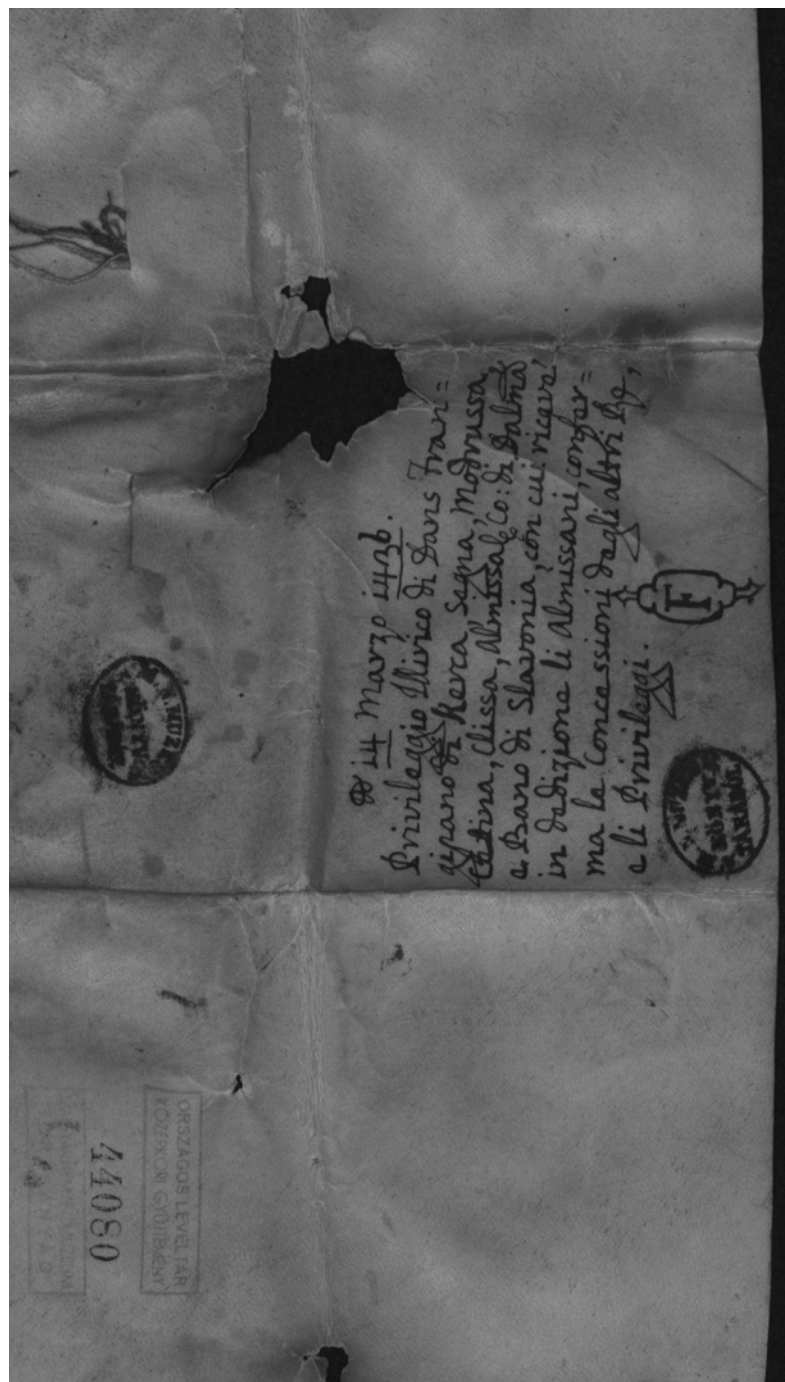 14 Marzo 1436.
Privileggio Illirico di Dans Fran=
gipano di Kerca, Segna, Modrussa,
Cetina, Clissa, Almissa &c. Co: di Dalma
e Bano di Slavonia, con cui riceve
in dedizione li Almissani, confer=
ma le Concessioni dagli altri
e li Privileggi.
F
44080
ORSZÁGOS LEVÉLTÁR
KÖZÉPKORI GYŰJTEMÉNY